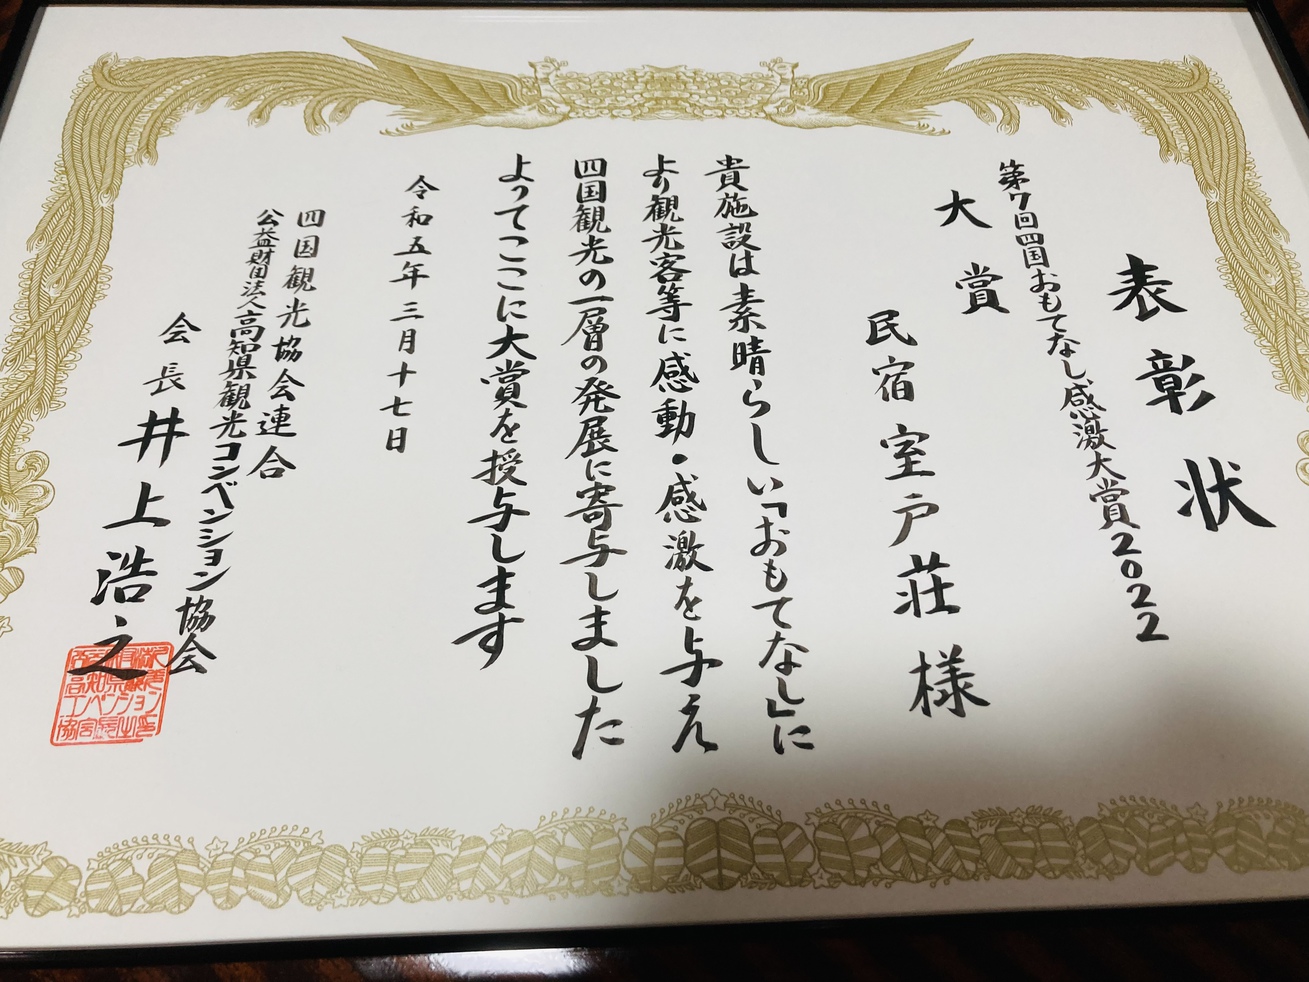 表彰状
第7回四国おもてなし感激大賞2022
大賞
民宿 室戸荘 様
貴施設は素晴らしい「おもてなし」に
より観光客等に感動・感激を与え
四国観光の一層の発展に寄与しました
よってここに大賞を授与します
令和五年三月十七日
四国観光協会連合
公益財団法人高知県観光コンベンション協会
会長 井上浩之